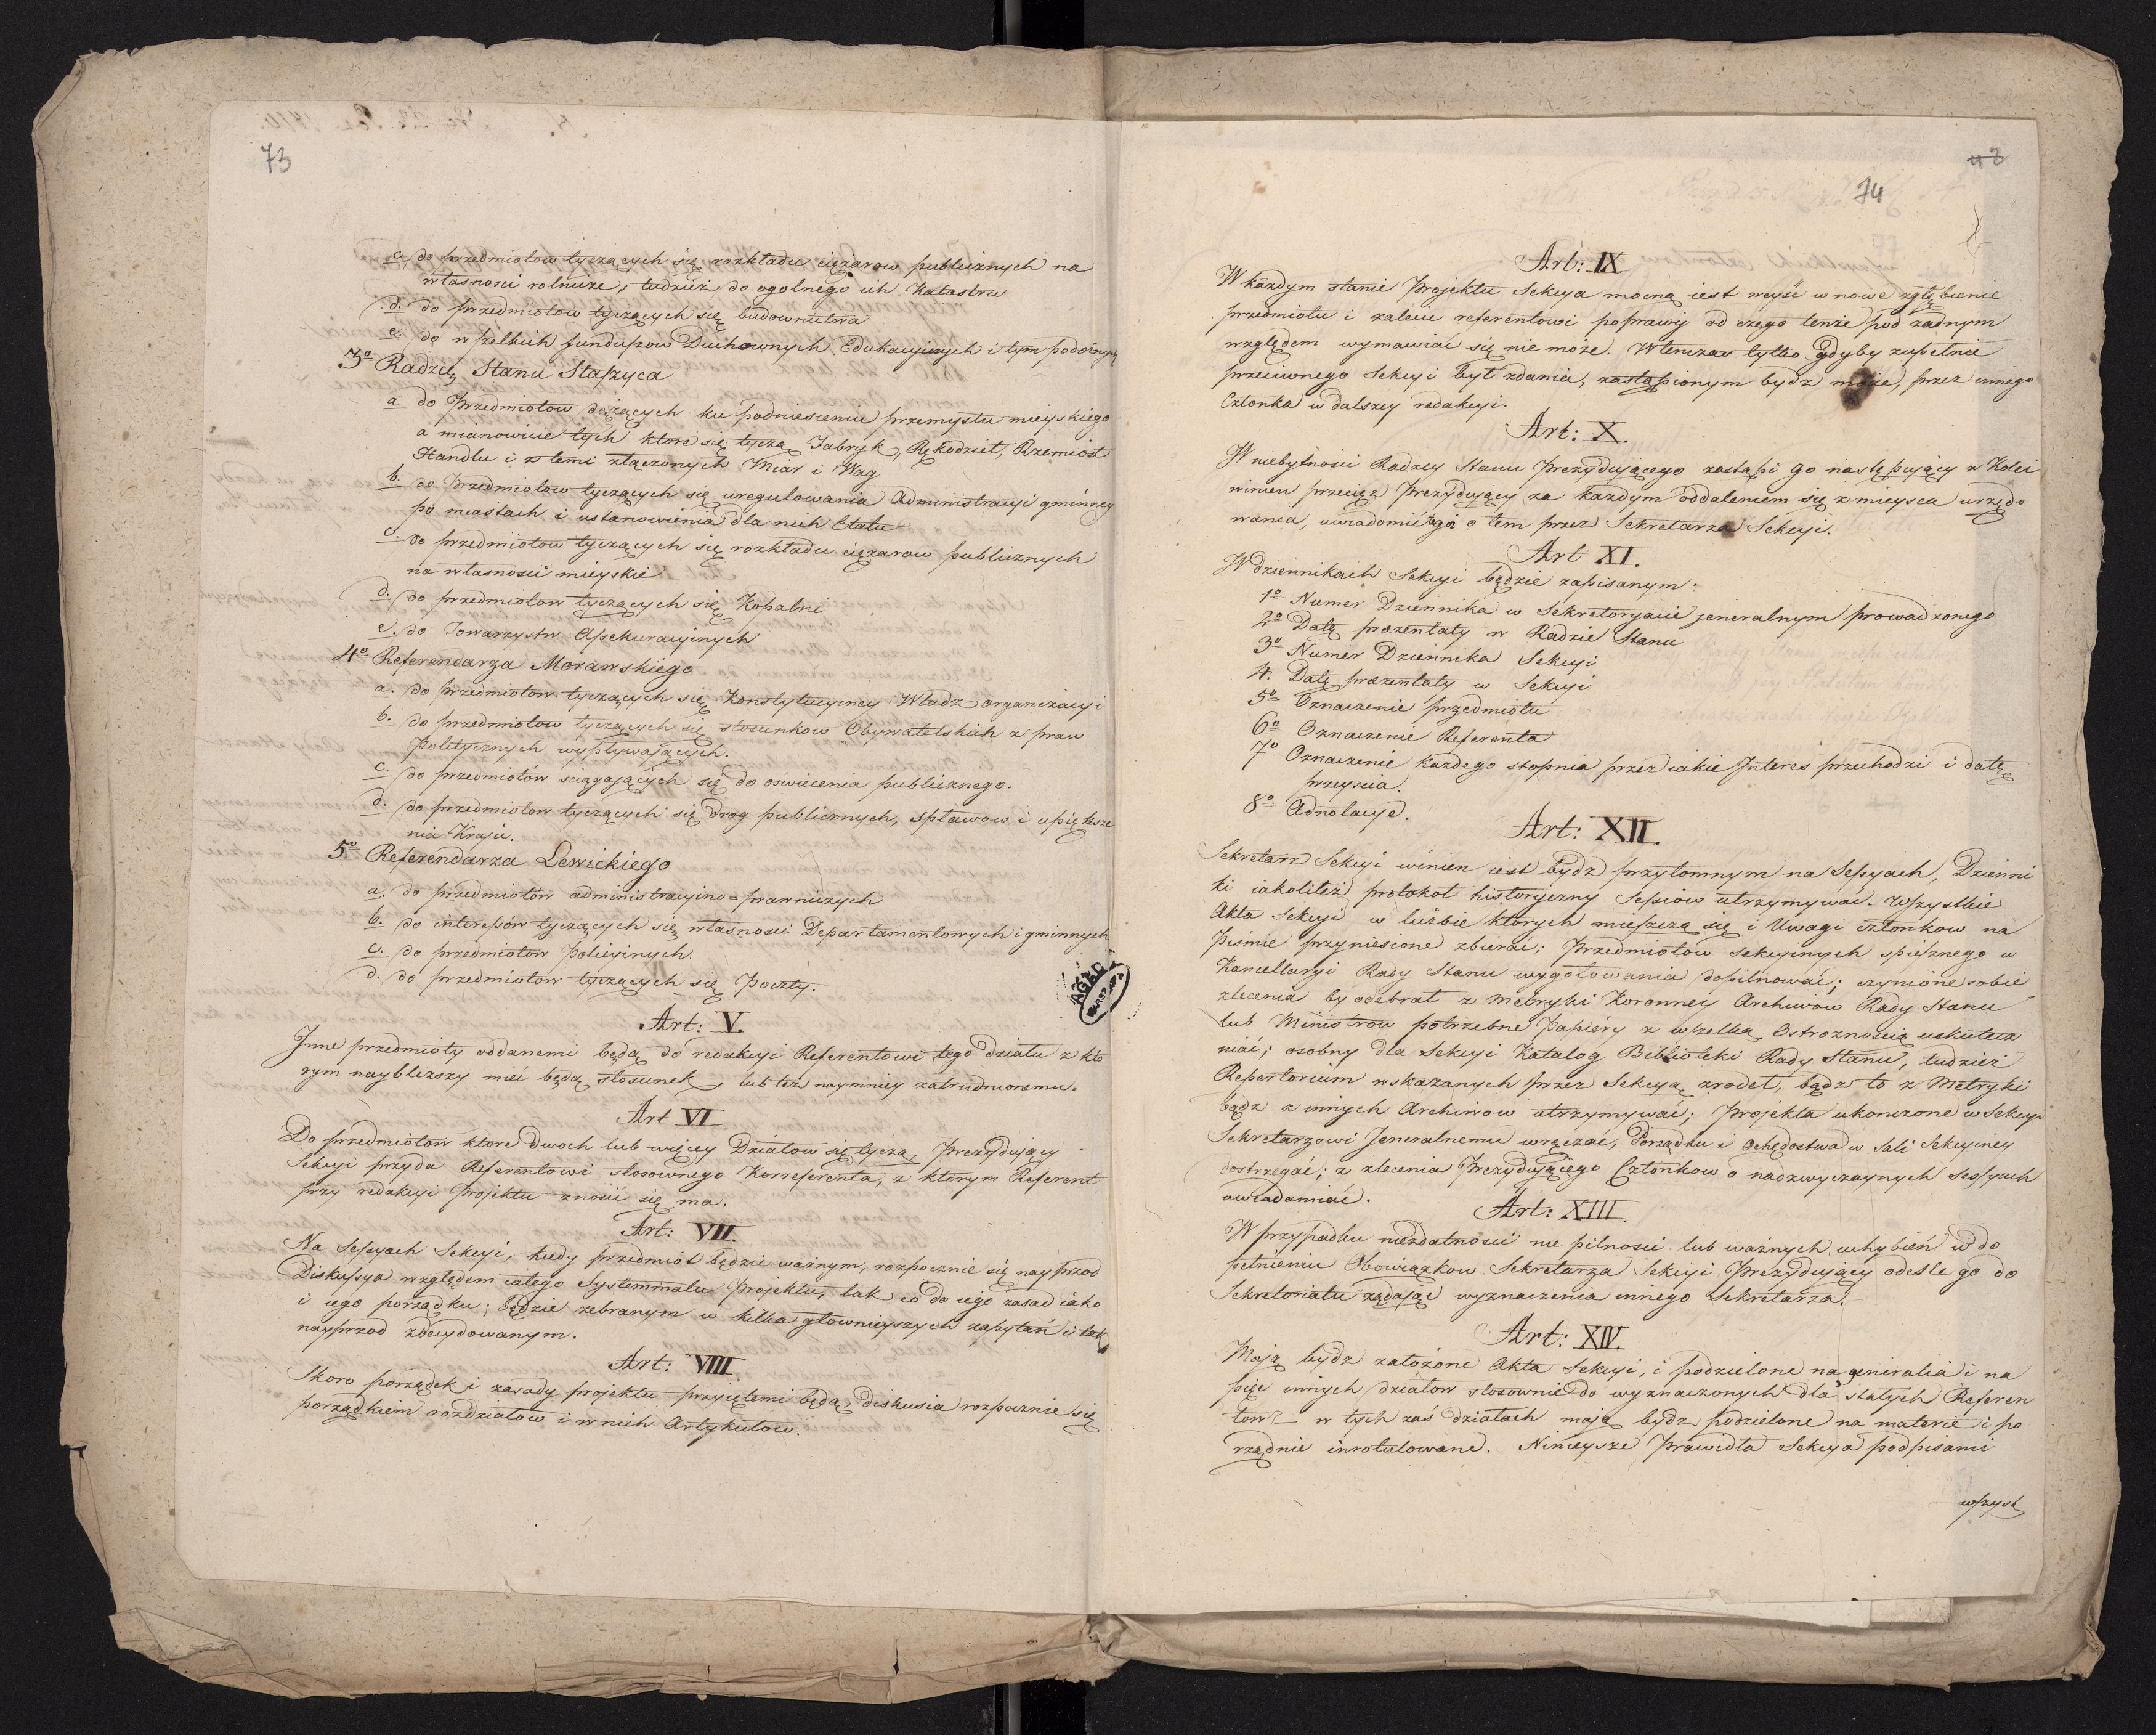 73
c. do przedmiotow tyczących się rozkładu ciężarow publicznych na
własności rolnicze, tudzież do ogolnego ich Katastru
d. do przedmiotow tyczących się budownictwa
e. do wszelkich funduszow Duchownych Edukacyinych i tym podobnych
3º Radzcę Stanu Staszyca
a do Przedmiotow dążących ku podniesieniu przemysłu mieyskiego
a mianowicie tych ktore się tyczą Fabryk, Rękodzieł, Rzemiosł
Handlu i z temi złączonych Miar i Wag
b. do Przedmiotow tyczących się uregulowania Administracyi gminney
po miastach i ustanowienia dla nich Etatu
c. do przedmiotow tyczących się rozkładu ciężarow publicznych
na własności mieyskie
d. do przedmiotow tyczących się Kopalni
e. do Towarzystw Assekuracyinych
4º Referendarza Morawskiego
a. do przedmiotow tyczących się Konstytucyiney Władz organizacyi
b. do przedmiotow tyczących się stosunkow Obywatelskich z praw
Politycznych wypływaiących.
c. do przedmiotów sciągaiących się do oswiecenia publicznego.
d. do przedmiotow tyczących się drog publicznych, spławow i upiększe
nia Kraju.
5º Referendarza Lewickiego
a. do przedmiotów administracyino=prawniczych
b. do interessów tyczących się własności Departamentowych i gminnych
c. do przedmiotow Policyinych.
d. do przedmiotow tyczących się Poczty.
Art: V.
Inne przedmioty oddanemi będą do redakcyi Referentowi tego działu z kto
rym naybliższy mieć będą stosunek, lub też naymniey zatrudnionemu.
Art VI
Do przedmiotow ktore dwoch lub więcey Działow się tyczą, Prezyduiący
Sekcyi przyda Referentowi stosownego Korreferenta, z którym Referent
przy redakcyi projektu znosić się ma.
Art: VII.
Na Sessyach Sekcyi, kiedy przedmiot będzie ważnym, rozpocznie się nayprzod
Diskussya względem całego Systemmatu Projektu, tak co do iego zasad iako
i iego porządku; będzie zebranym w kilka głownieyszych zapytań i tak
nayprzod zdecydowanym.
Art: VIII.
Skoro porządek i zasady projektu przyiętemi będą, diskusia rozpocznie się
porządkiem rozdziałow i w nich Artykułow.
AGAD
74
Art: IX
W każdym stanie Projektu Sekcya mocną iest weyść w nowe zgłębienie
przedmiotu i zalecić referentowi poprawę od czego tenże pod żadnym
względem wymawiać się nie może. Wtenczas tylko gdyby zupełnie
przeciwnego Sekcyi był zdania, zastąpionym bydz może, przez innego
Członka w dalszey redakcyi.
Art: X.
W niebytności Radzcy Stanu Prezyduiącego zastąpi go następuiący z Kolei
winien przecież Prezyduiący za każdym oddaleniem się z mieysca urzędo
wania, uwiadomić tego o tem przez Sekretarza Sekcyi.
Art XI.
W dziennikach Sekcyi będzie zapisanym:
1º Numer Dziennika w Sekretoryacie jeneralnym prowadzonego
2º Datę prezentaty w Radzie Stanu
3º Numer Dziennika Sekcyi
4. Datę prezentaty w Sekcyi
5º Oznaczenie przedmiotu
6º Oznaczenie Referenta
7º Oznaczenie każdego stopnia przez iakie Interes przechodzi i datę
przeyscia.
8º Adnotacye.
Art: XII.
Sekretarz Sekcyi winien iest bydz przytomnym na Sessyach, Dzienni
ki iakoliteż protokoł historyczny Sessiow utrzymywać. Wszystkie
Akta Sekcyi w liczbie ktorych mieszczą się i Uwagi członkow na
Piśmie przyniesione zbierać; Przedmiotow sekcyinych spiesznego w
Kancellaryi Rady Stanu wygotowania dopilnować; czynione sobie
zlecenia by odebrał z Metryki Koronney Archiwow Rady Stanu
lub Ministrow potrzebne Papiéry z wszelką Ostroznością uskutecz
niać; osobny dla Sekcyi Katalog Biblioteki Rady Stanu, tudzież
Repertorium wskazanych przez Sekcyą zrodeł, bądz to z Metryki
bądz z innych Archiwow utrzymywać; Projekta ukonczone w Sekcyi
Sekretarzowi Jeneralnemu wręczać, Porządku i Ochędostwa w Sali Sekcyiney
dostrzegać; z zlecenia Prezyduiącego Członkow o nadzwyczaynych Sessyach
uwiadamiać.
Art: XIII.
W przypadku niezdatności nie pilności lub ważnych uchybień w do
pełnieniu Obowiązkow Sekretarza Sekcyi Prezyduiący odeśle go do
Sekretoriatu żądaiąc wyznaczenia innego Sekretarza.
Art: XIV.
Maią bydz założone Akta Sekcyi, i podzielone na generalia i na
pięć innych działow stosownie do wyznaczonych dla stałych Referen
tow – w tych zaś działach maią bydz podzielone na materie i po
rządnie inrotulowane. Ninieysze Prawidła Sekcya podpisami
wszyst